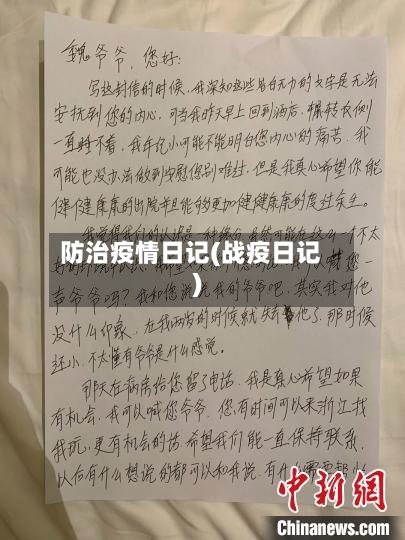 魏爷爷，您好：
写这封信的时候，我深知这些苍白无力的文字是无法
安抚到您的内心，可当我昨天早上回到酒店，辗转衣侧
一直睡不着，我年纪小可能不能明白您内心的痛苦，我
可能也没办法做到安慰您别难过，但是我真心希望你能
健健康康的出院并且能够更加健健康康的度过余生。
我觉得我们的认识是一种缘分，虽然可能在这么一个不太
防治疫情日记(战疫日记
)
您一
声爷爷吗？我和您说说我的爷爷吧，其实我对他
没什么印象，在我两岁的时候就失去他了，那时候
还小，不太懂有爷爷是什么感觉。
那天在病房给您留了电话，我是真心希望如果
有机会，我可以喊你爷爷，您有时间可以来浙江找
我玩，更有机会的话希望我们能一直保持联系，
以后有什么想说的都可以和我说，有什么需要帮忙
中新网
Chinanews.com